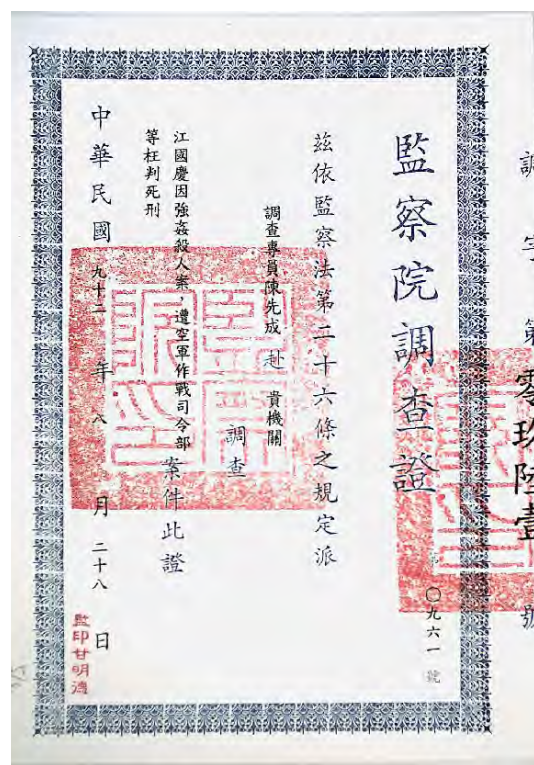 調字第零玖陸壹號
監察院調查證
第〇九六一號
茲依監察法第二十六條之規定派
調查專員陳先成赴貴機關
調查
江國慶因強姦殺人案遭空軍作戰司令部
等枉判死刑
案件此證
中華民國九十二年八月二十八日
監印甘明德